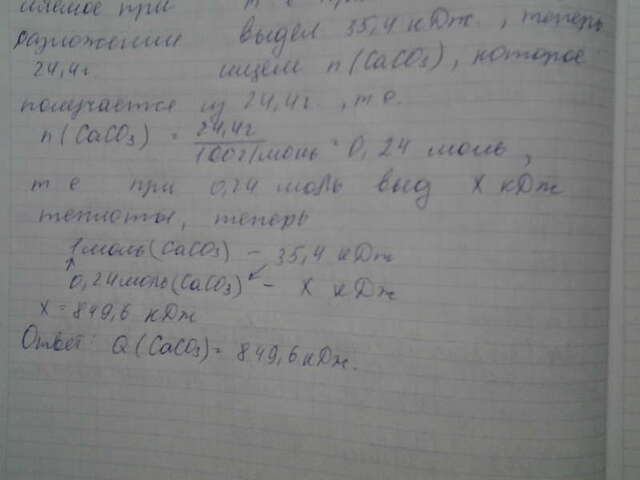 при т е
разложении выдел 35,4 кДж. , теперь
24,4г ищем n (CaCO3) , которое
получается из 24,4г. , т е.
n (CaCO3) = 24,4г / 100г/моль = 0, 24 моль ,
т е при 0,24 моль выд X кДж
теплоты, теперь
1 моль (CaCO3) - 35,4 кДж
0,24 моль (CaCO3) - X кДж
X = 849,6 кДж
Ответ: Q (CaCO3) = 849,6 кДж.